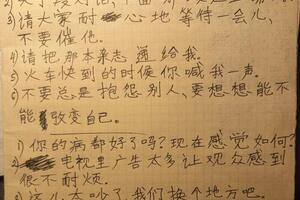 3) 请大家耐心地等待一会儿,
不要催他。
4) 请把那本杂志递给我。
5) 火车快到的时候你喊我一声。
6) 不要总是抱怨别人,要想想能不
能改变自己。
1) 你的病都好了吗? 现在感觉如何?
2) 电视里广告太多让观众感到
很不耐烦。
这儿太吵了,我们换个地方吧。